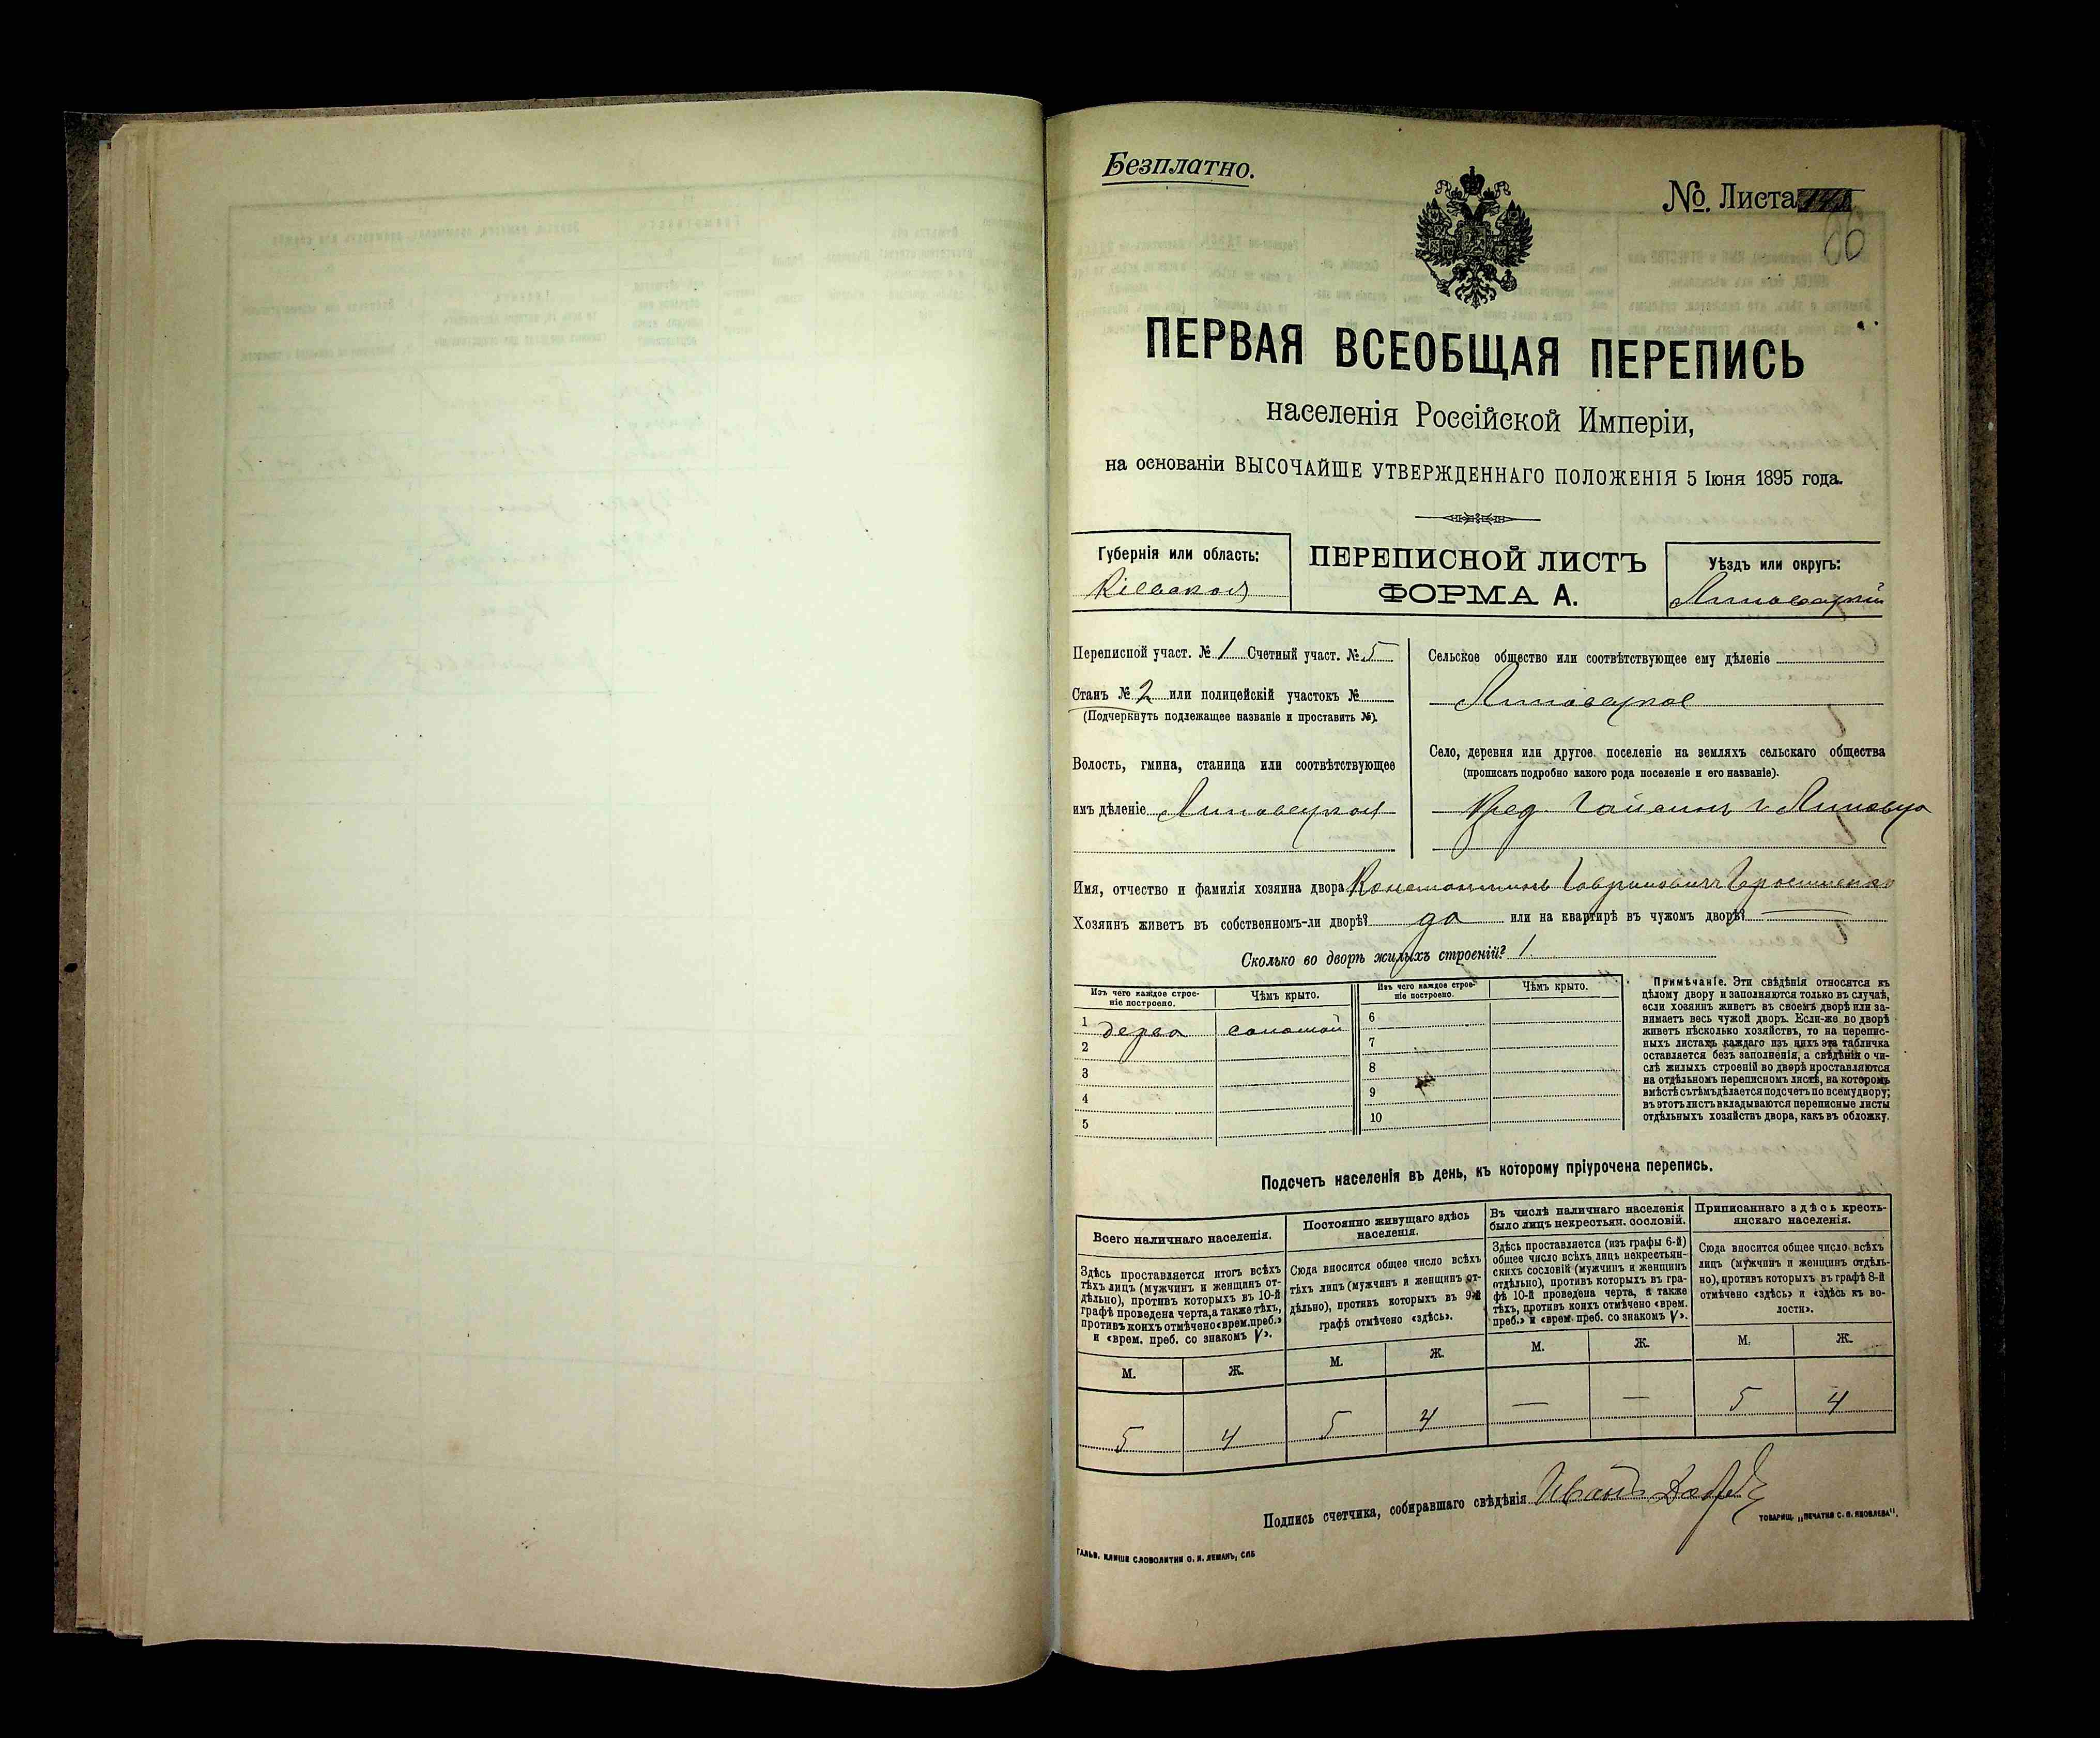 Безплатно.
№. Листа
60
ПЕРВАЯ ВСЕОБЩАЯ ПЕРЕПИСЬ
населенія Россійской Имперіи,
на основаніи ВЫСОЧАЙШЕ УТВЕРЖДЕННАГО ПОЛОЖЕНІЯ 5 Іюня 1895 года.
Губернія или область:
Кіевская
ПЕРЕПИСНОЙ ЛИСТЪ
ФОРМА А.
Уѣздъ или округъ:
Липовецкій
Переписной участ. № 1 Счетный участ. № 5
Станъ № 2 или полицейскій участокъ №
(Подчеркнуть подлежащее названіе и проставить №).
Волость, гмина, станица или соотвѣтствующее
имъ дѣленіе Липовецкая
Сельское общество или соотвѣтствующее ему дѣленіе
Липовецкое
Село, деревня или другое поселеніе на земляхъ сельскаго общества
(прописать подробно какого рода поселеніе и его названіе).
Пред. Гайсинъ г. Липовца
Имя, отчество и фамилія хозяина двора Константинъ Гавриловичъ
Хозяинъ живетъ въ собственномъ-ли дворѣ? да или на квартирѣ въ чужомъ дворѣ? —
Сколько во дворѣ жилыхъ строеній? 1.
Изъ чего каждое строе-
ніе построено.
Чѣмъ крыто.
Изъ чего каждое строе-
ніе построено.
Чѣмъ крыто.
1 дерева соломой
2
3
4
5
6
7
8
9
10
Примѣчаніе. Эти свѣдѣнія относятся къ
цѣлому двору и заполняются только въ случаѣ,
если хозяинъ живетъ въ своемъ дворѣ или за-
нимаетъ весь чужой дворъ. Если-же во дворѣ
живетъ нѣсколько хозяйствъ, то на перепис-
ныхъ листахъ каждаго изъ нихъ эта табличка
оставляется безъ заполненія, а свѣдѣнія о чи-
слѣ жилыхъ строеній во дворѣ проставляются
на отдѣльномъ переписномъ листѣ, на которомъ
вмѣстѣ съ тѣмъ дѣлается подсчетъ по всему двору;
въ этотъ листъ вкладываются переписные листы
отдѣльныхъ хозяйствъ двора, какъ въ обложку.
Подсчетъ населенія въ день, къ которому пріурочена перепись.
Всего наличнаго населенія.
Здѣсь проставляется итогъ всѣхъ
тѣхъ лицъ (мужчинъ и женщинъ от-
дѣльно), противъ которыхъ въ 10-й
графѣ проведена черта, а также тѣхъ,
противъ коихъ отмѣчено «врем. преб.»
и «врем. преб. со знакомъ V».
Постоянно живущаго здѣсь
населенія.
Сюда вносится общее число всѣхъ
тѣхъ лицъ (мужчинъ и женщинъ от-
дѣльно), противъ которыхъ въ 9-й
графѣ отмѣчено «здѣсь».
Въ числѣ наличнаго населенія
было лицъ некрестьян. сословій.
Здѣсь проставляется (изъ графы 6-й)
общее число всѣхъ лицъ некрестьян-
скихъ сословій (мужчинъ и женщинъ
отдѣльно), противъ которыхъ въ гра-
фѣ 10-й проведена черта, а также
тѣхъ, противъ коихъ отмѣчено «врем.
преб.» и «врем. преб. со знакомъ V».
Приписаннаго здѣсь кресть-
янскаго населенія.
Сюда вносится общее число всѣхъ
лицъ (мужчинъ и женщинъ отдѣль-
но), противъ которыхъ въ графѣ 8-й
отмѣчено «здѣсь» и «здѣсь къ во-
лости».
М. Ж. М. Ж. М. Ж. М. Ж.
5 4 5 4 — — 5 4
Подпись счетчика, собиравшаго свѣдѣнія Иванъ
ТОВАРИЩ. „ПЕЧАТНЯ С. П. ЯКОВЛЕВА".
ГАЛЬВ. КЛИШЕ СЛОВОЛИТНИ О. И. ЛЕМАНЪ, СПБ